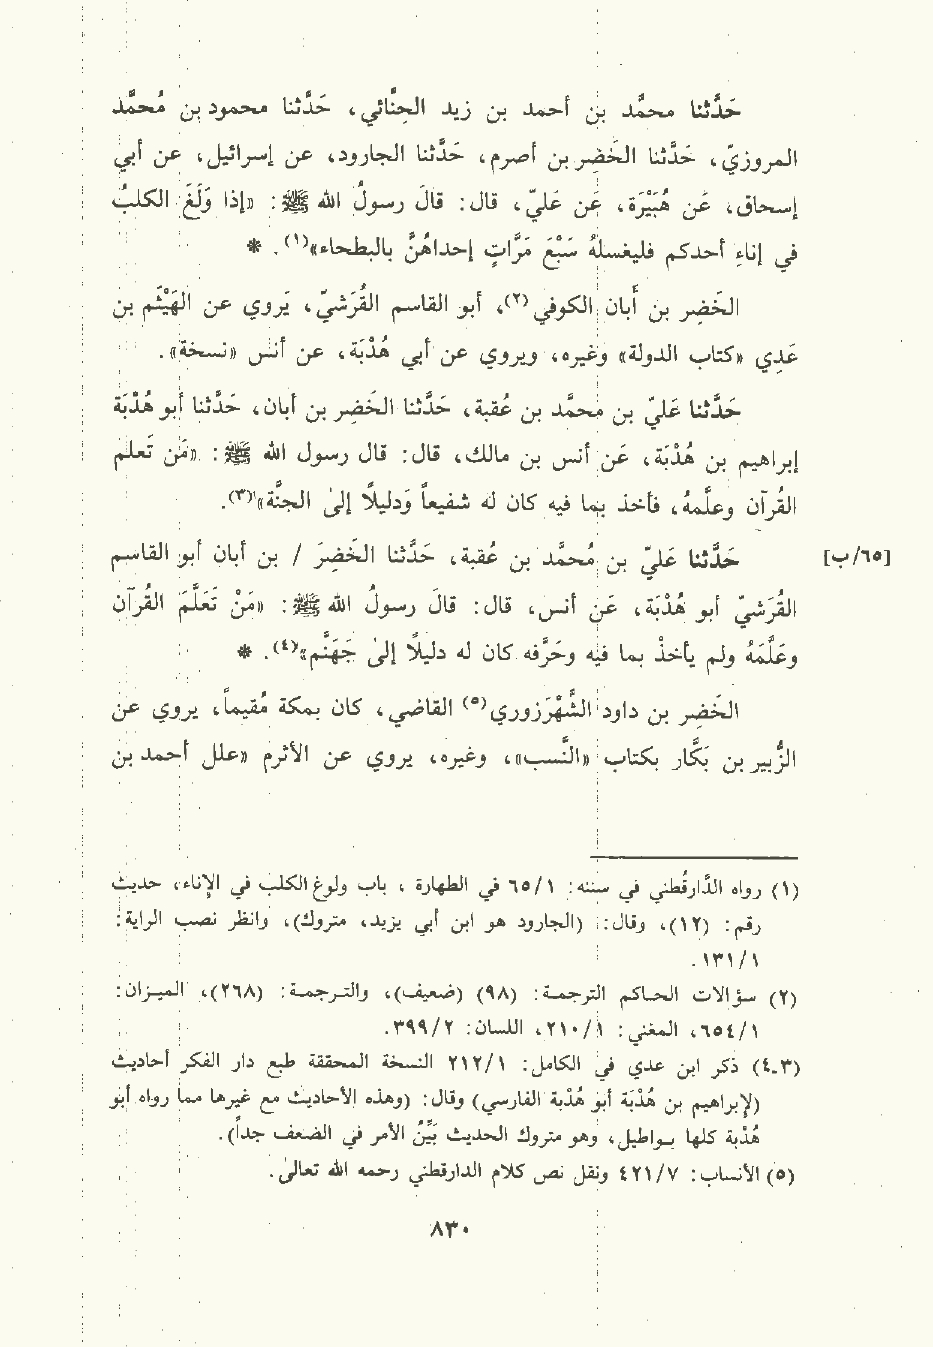 حَدَّثنا محمَّد بن أحمد بن زيد الحِنَّائي، حَدَّثنا محمود بن مُحمَّد
المروزيّ، حَدَّثنا الخَضِر بن أصرم، حَدَّثنا الجارود، عن إسرائيل، عن أبي
إسحاق، عَن هُبَيْرَة، عَن عَليّ، قال: قالَ رسولُ الله ﷺ: «إذا وَلَغَ الكلبُ
في إناءِ أحدكم فليغسلهُ سَبْعَ مَرَّاتٍ إحداهُنَّ بالبطحاء»(١). *
الخَضِر بن أَبان الكوفي(٢)، أبو القاسم القُرَشيّ، يَروي عن الهَيْثَم بن
عَدِي «كتاب الدولة» وغيره، ويروي عن أبي هُدْبَة، عن أنس «نسخة».
حَدَّثنا عَليّ بن محمَّد بن عُقبة، حَدَّثنا الخَضِر بن أبان، حَدَّثنا أبو هُدْبَة
إبراهيم بن هُدْبَة، عَن أنس بن مالك، قال: قال رسول الله ﷺ: «مَن تَعلم
القُرآن وعلَّمهُ، فأخذ بما فيه كان له شفيعاً وَدليلاً إلىٰ الجنَّة»(٣).
[٦٥/ب] حَدَّثنا عَليّ بن مُحمَّد بن عُقبة، حَدَّثنا الخَضِرَ / بن أبان أبو القاسم
القُرَشيّ أبو هُدْبَة، عَن أنس، قال: قالَ رسولُ الله ﷺ: «مَنْ تَعَلَّمَ القُرآن
وعَلَّمَهُ ولم يأخذْ بما فيه وحَرَّفه كان له دليلاً إلىٰ جَهَنَّم»(٤). *
الخَضِر بن داود الشَّهْرَزوري(٥) القاضي، كان بمكة مُقيماً، يروي عن
الزُّبير بن بَكَّار بكتاب «النَّسب»، وغيره، يروي عن الأثرم «علل أحمد بن
(١) رواه الدَّارقُطني في سننه: ٦٥/١ في الطهارة، باب ولوغ الكلب في الإناء، حديث
رقم: (١٢)، وقال: (الجارود هو ابن أبي يزيد، متروك)، وانظر نصب الراية:
١٣١/١.
(٢) سؤالات الحاكم الترجمة: (٩٨) (ضعيف)، والترجمة: (٢٦٨)، الميزان:
٦٥٤/١، المغني: ٢١٠/١، اللسان: ٣٩٩/٢.
(٣-٤) ذكر ابن عدي في الكامل: ٢١٢/١ النسخة المحققة طبع دار الفكر أحاديث
(لإبراهيم بن هُدْبَة أبو هُدْبة الفارسي) وقال: (وهذه الأحاديث مع غيرها مما رواه أبو
هُدْبة كلها بواطيل، وهو متروك الحديث بَيِّنُ الأمر في الضعف جداً).
(٥) الأنساب: ٤٢١/٧ ونقل نص كلام الدارقطني رحمه الله تعالىٰ.
٨٣٠